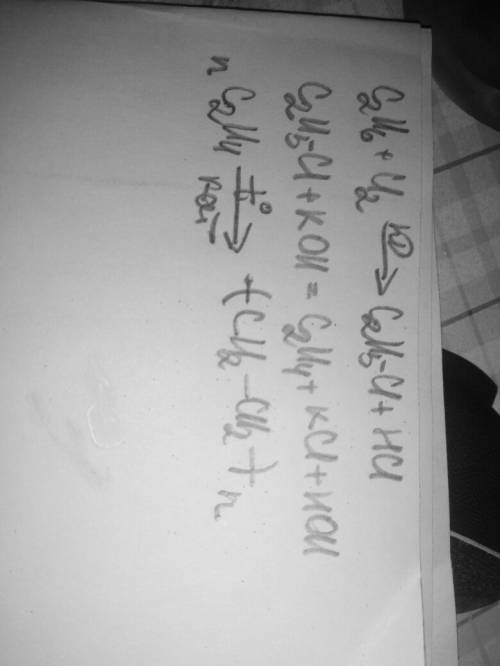 C₂H₆ + Cl₂ hν→ C₂H₅-Cl + HCl
C₂H₅-Cl + KOH = C₂H₄ + KCl + HOH
n C₂H₄ t° кат→ -(CH₂-CH₂-)n